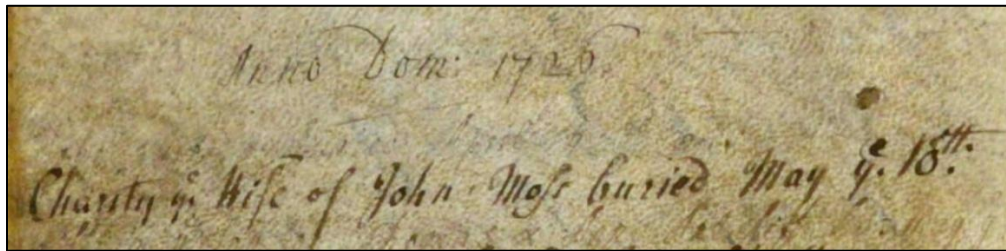 Anno Dom: 1726
Charity yͤ Wife of John Moſs buried May yͤ. 18ᵗʰ.